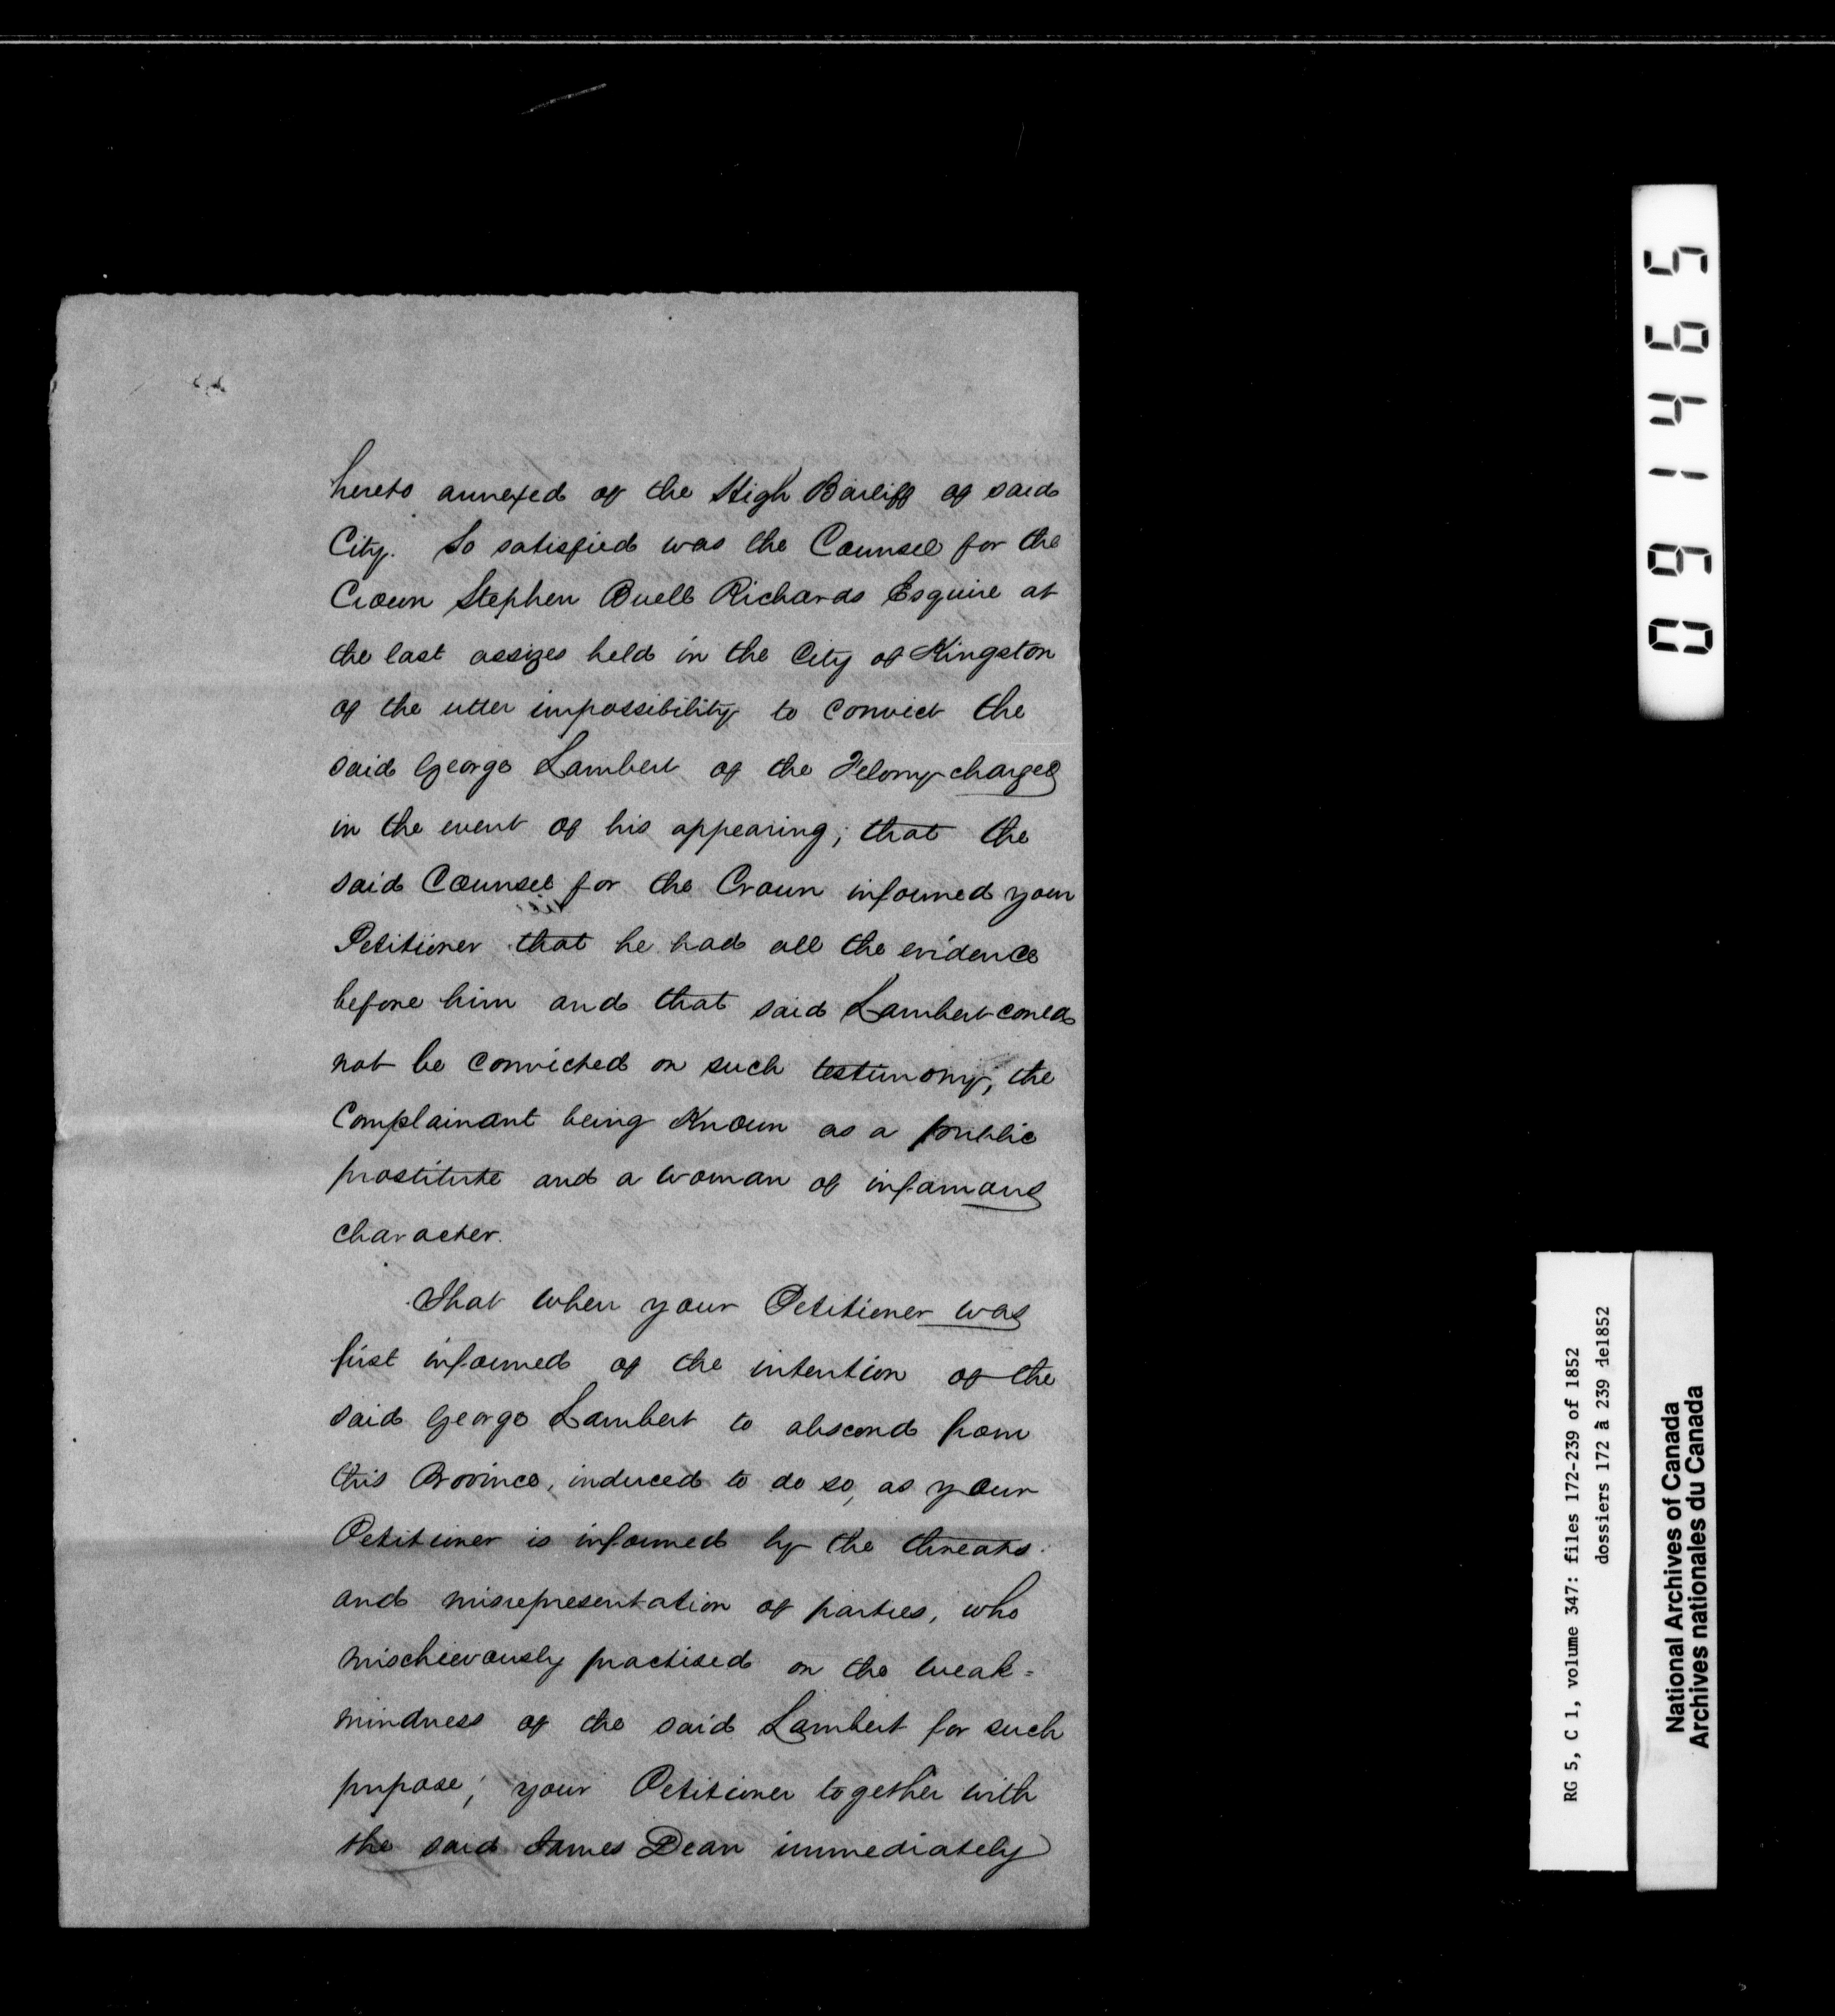 hereto annexed of the High Bailiff of said
City. So satisfied was the Counsel for the
Crown Stephen Buell Richards Esquire at
the last assizes held in the City of Kingston
of the utter impossibility to convict the
said George Lambert of the Felony charged
in the event of his appearing; that the
said Counsel for the Crown informed your
Petitioner that he had all the evidence
before him and that said Lambert could
not be convicted on such testimony, the
Complainant being Known as a public
prostitute and a woman of infamous
character.
That when your Petitioner was
first informed of the intention of the
said George Lambert to abscond from
this Province, induced to do so, as your
Petitioner is informed by the threats
and misrepresentation of parties, who
mischievously practised on the weak=
mindness of the said Lambert for such
purpose; your Petitioner together with
the said James Dean immediately
091465
RG 5, C 1, volume 347: files 172-239 of 1852
dossiers 172 à 239 de1852
National Archives of Canada
Archives nationales du Canada